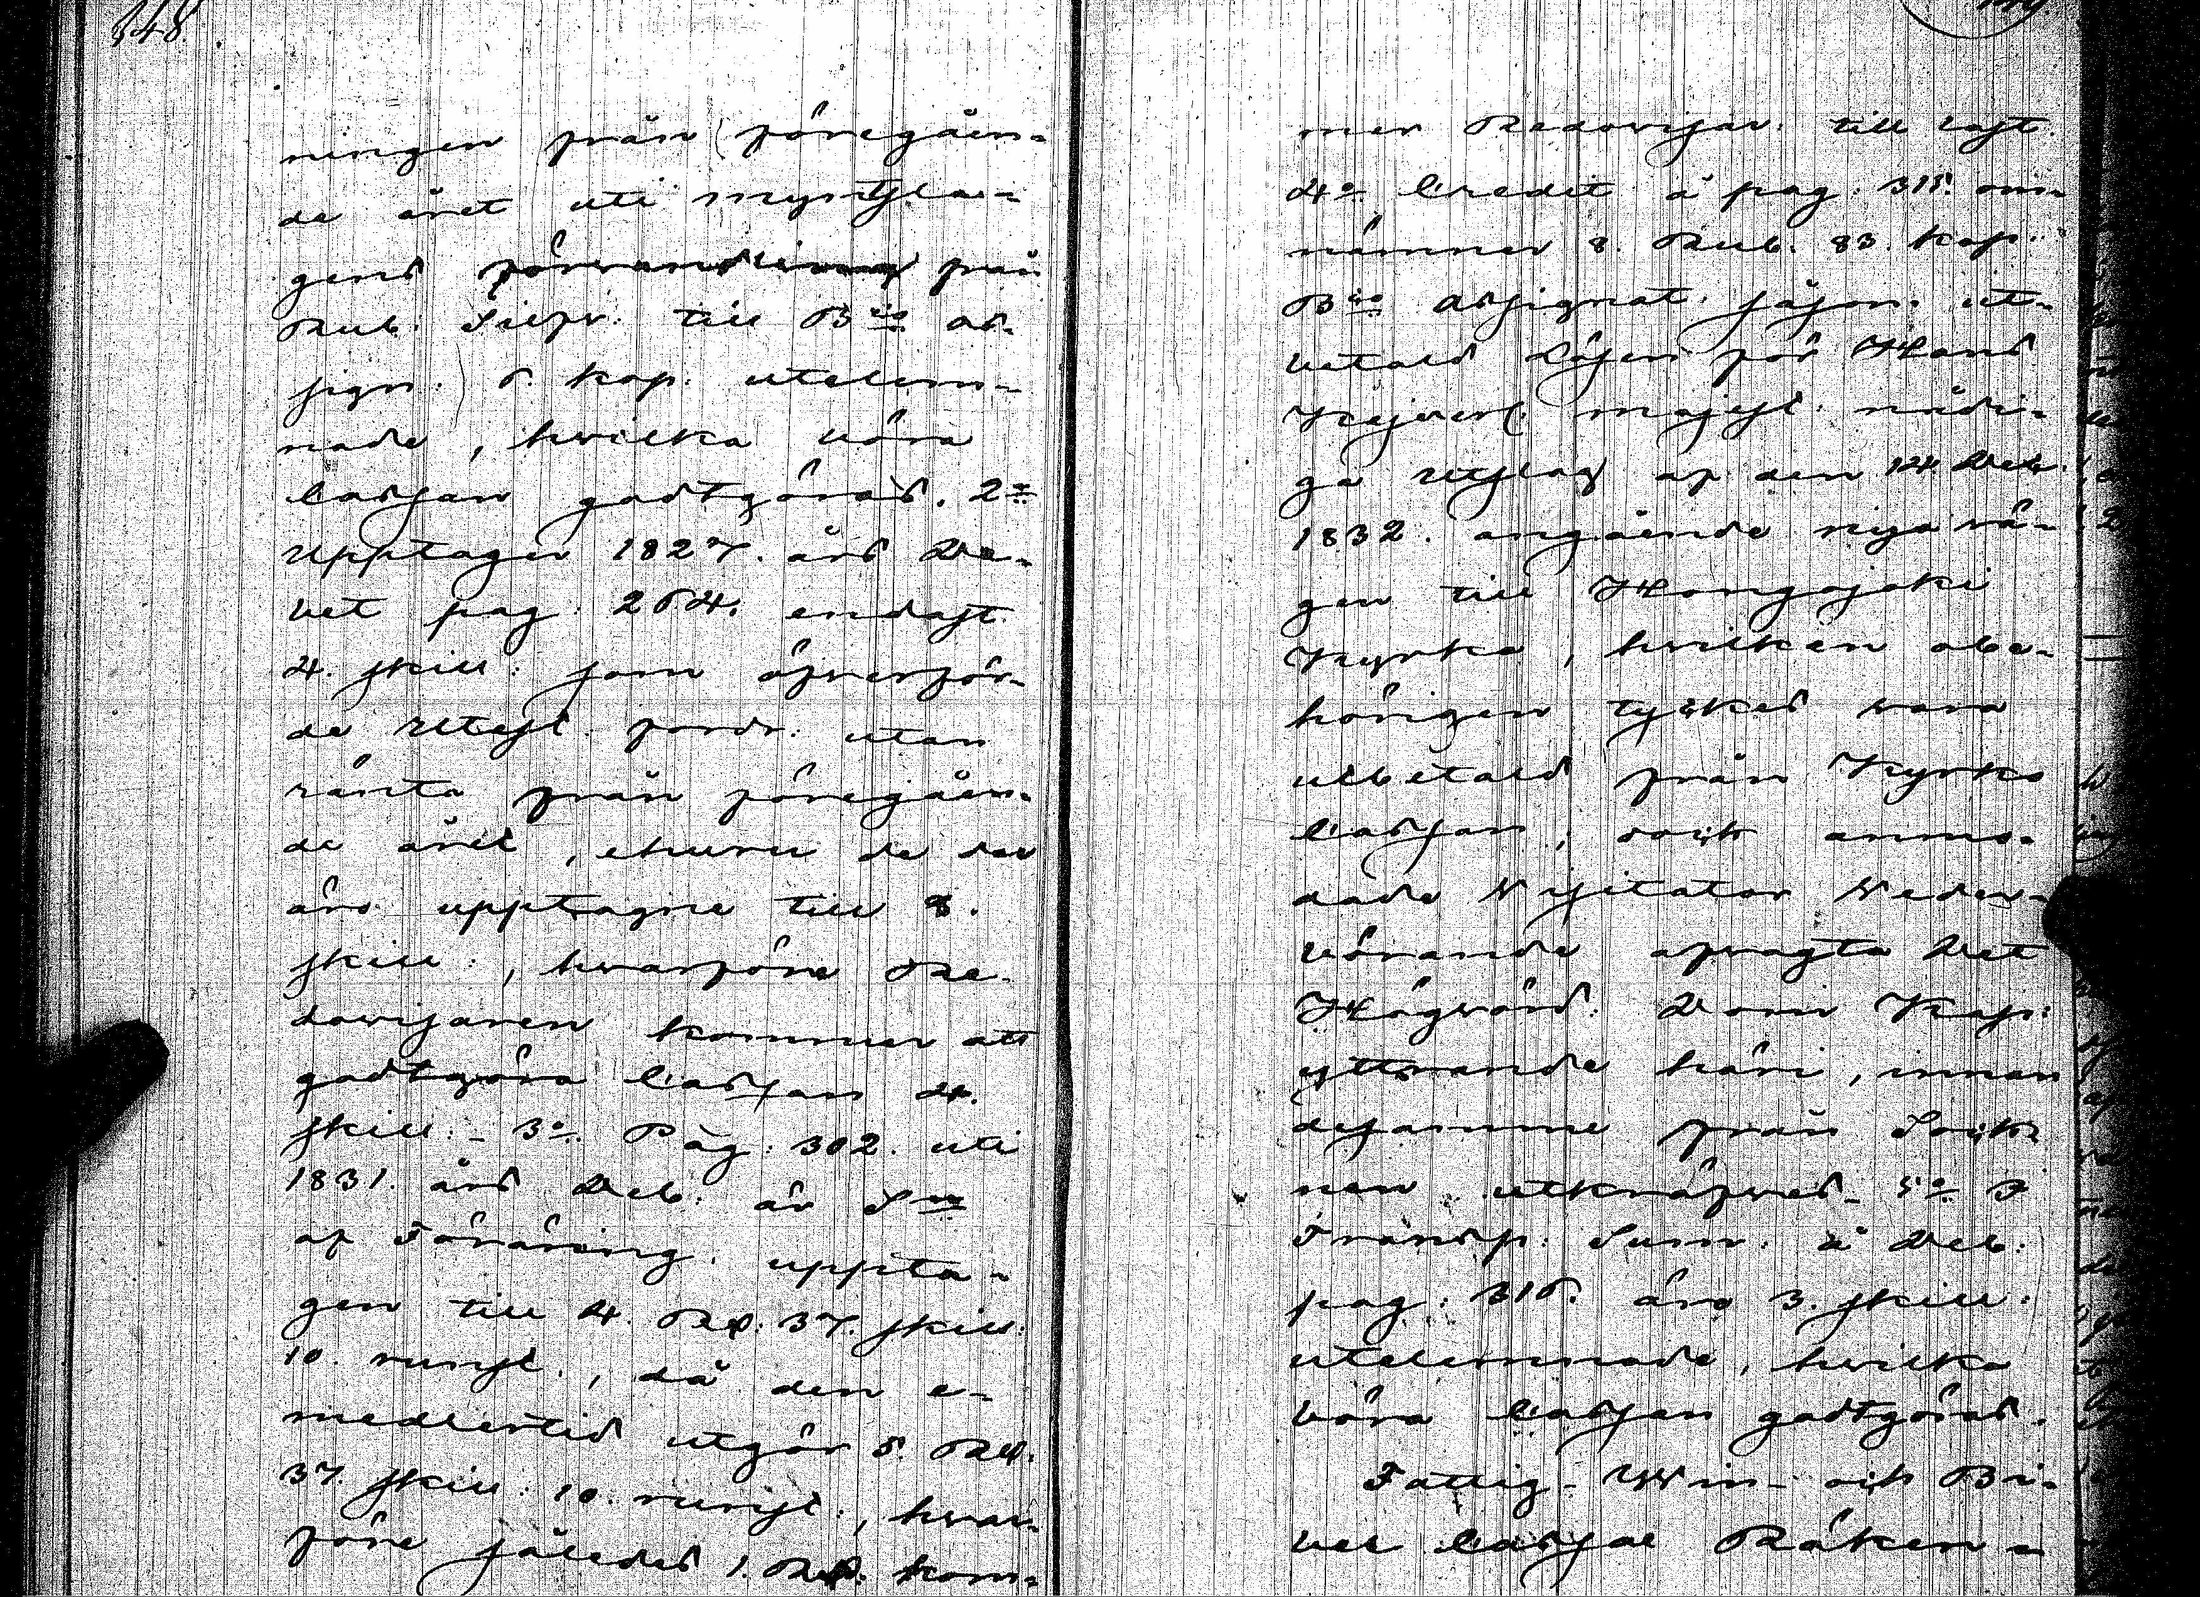 348.
ningen från föregåen-
de året uti myntsla-
gens förvandling från
Rub: Silfv: till B:co as-
sign: 5. kop: utelem-
nade, hvilka böra
Cassan godtgöras. 2:o
Upptager 1827. års De-
bet pag: 254. endast
4. skill: som öfverför-
de Utest. fordr: utan
ränta från föregåen-
de året, ehuru de der
äro upptagne till 8.
skill:, hvarföre Re-
dovisaren kommer att
godtgöra Cassan 4.
skill:- 3:o Pag: 302. uti
1831. års Deb: är S:n
af Föräring uppta-
gen till 4. Rd: 37. skill:
10. runst., då den e-
medlertid utgör 5. Rd.
37. skill: 10. runst:, hvar-
före således 1. Rd: kom-
mer Redovisar: till last.
4:o Credit å pag: 315. om-
nämner 8. Rub: 83. kop:
B:co Assignat: såsom ut-
betald Lösen för Hans
Kejserl: Majest: nådi-
ga Utslag af den 14 Deb:
1832. angående nya vä-
gen till Hongojoki
Kyrka, hvilken obe-
hörigen tyckes vara
utbetald från Kyrko
Cassan; dock anmo-
dade Visitator Veder-
börande afvagta Det
Högvörd: Dom Kap:
yttrande häri, innan
desamme från Sock
nen utkräfves- 5:o I
Transp: Sum: å Deb:
pag: 316. äro 3. skill:
utelemnade, hvilka
böra Cassan godtgöras.
Fattig- Vin- och Bi-
bel Cassae Räken-